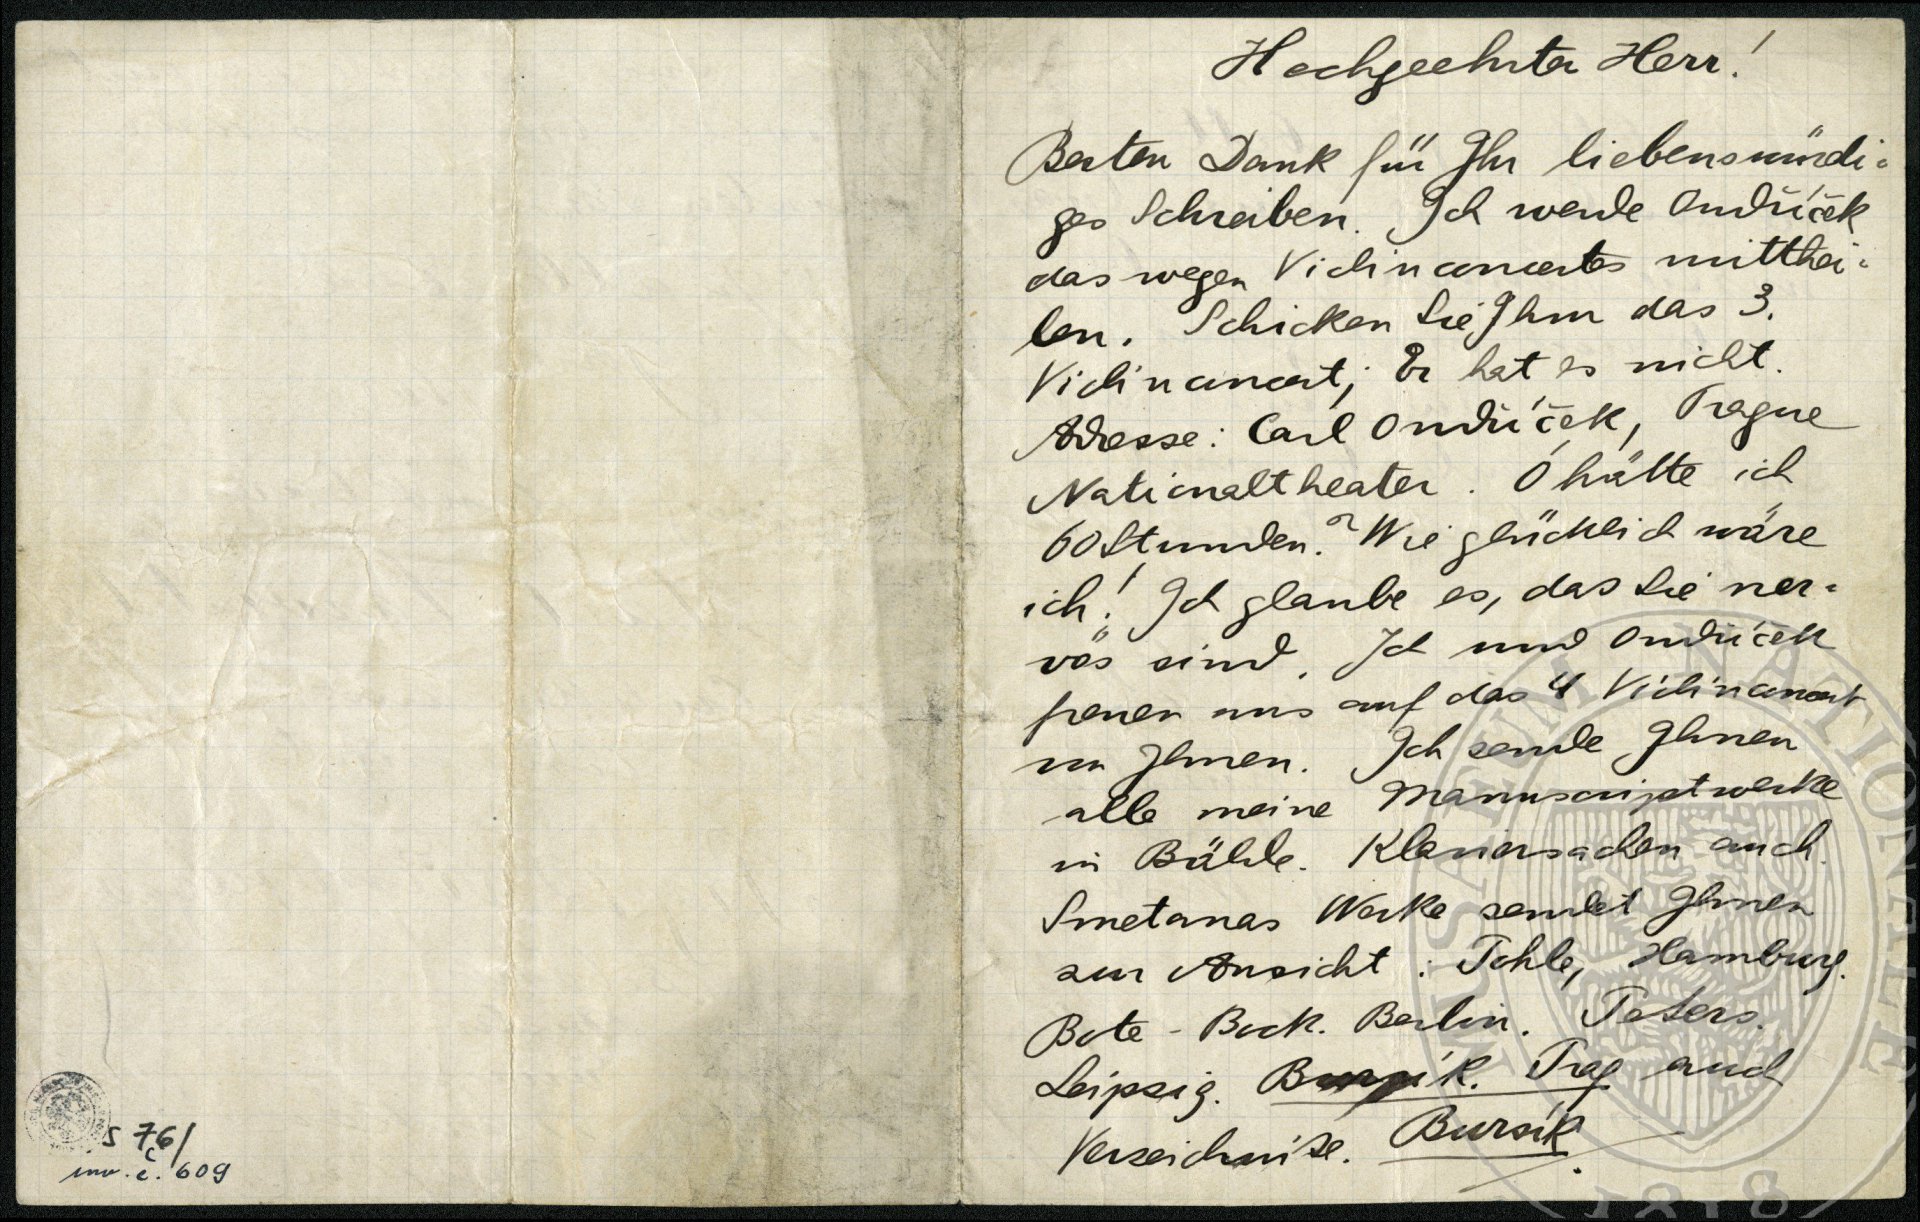 Hochgeehrter Herr!
Besten Dank für Ihr liebenswürdi-
ges Schreiben. Ich werde Ondříček
das wegen Violinconcertes mitthei-
len. Schicken Sie Ihm das 3.
Violinconcert; Er hat es nicht.
Adresse: Carl Ondříček, Prague
Nationaltheater. O hätte ich
60 Stunden. Wie glücklich wäre
ich! Ich glaube es, das Sie ner-
vös sind. Ich und Ondříček
freuen uns auf das 4 Violinconcert
von Ihnen. Ich sende Ihnen
alle meine Manuscriptwerke
in Bälde. Klaviersachen auch.
Smetanas Werke sendet Ihnen
zur Ansicht: Pohle, Hamburg.
Bote - Bock. Berlin. Peters.
Leipzig. Bursík. Prag auch
Verzeichnisse. Bursík
S 76/
inv. č. 609
MUSAEUM NATIONALE
1818